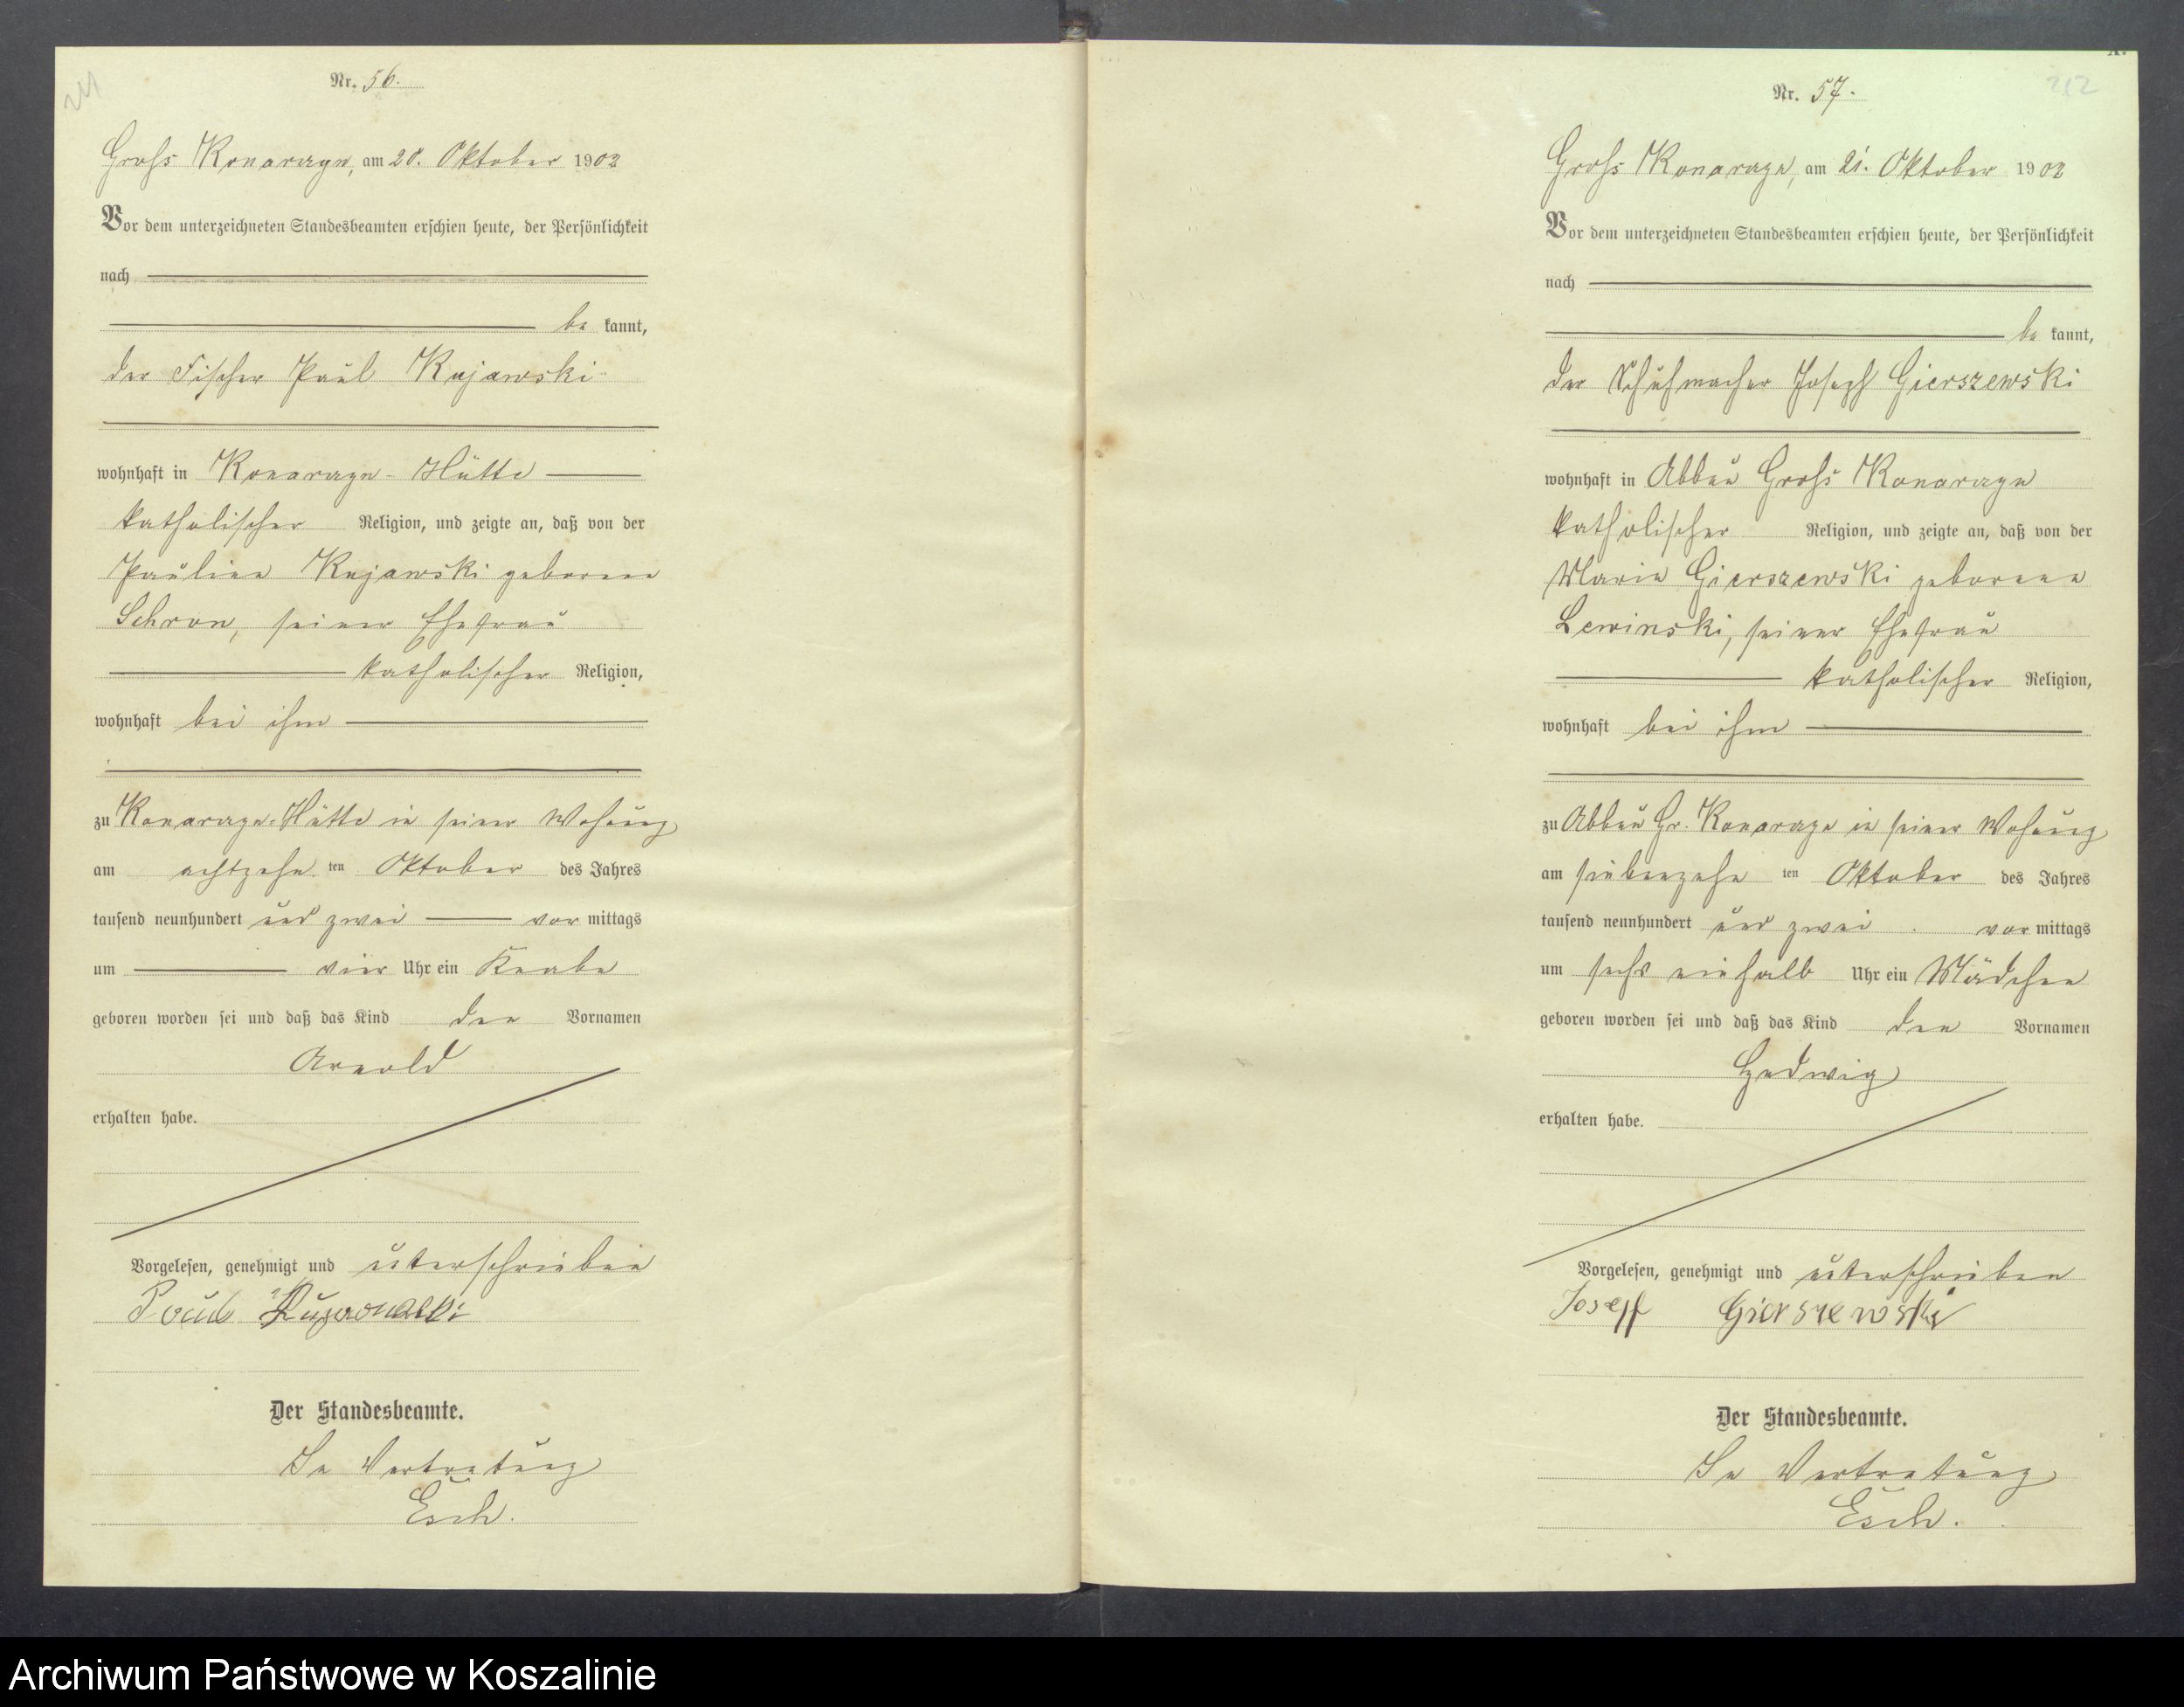 211
Nr. 56.
Groß Konarczyn, am 20. Oktober 1902
Vor dem unterzeichneten Standesbeamten erschien heute, der Persönlichkeit
nach
be kannt,
der Fischer Paul Kujawski
wohnhaft in Konarczyn-Hütte
katholischer Religion, und zeigte an, daß von der
Pauline Kujawski geborene
Schron, seiner Ehefrau
katholischer Religion,
wohnhaft bei ihm
zu Konarczyn-Hütte in seiner Wohnung
am achtzehn ten Oktober des Jahres
tausend neunhundert und zwei vor mittags
um vier Uhr ein Knabe
geboren worden sei und daß das Kind den Vornamen
Arnold
erhalten habe.
Vorgelesen, genehmigt und unterschrieben
Paul
Der Standesbeamte.
In Vertretung
Esch.
212
Nr. 57.
Groß Konarczyn, am 21. Oktober 1902
Vor dem unterzeichneten Standesbeamten erschien heute, der Persönlichkeit
nach
be kannt,
der Schuhmacher Joseph Gierszewski
wohnhaft in Abbau Groß Konarczyn
katholischer Religion, und zeigte an, daß von der
Maria Gierszewski geborene
Lewinski, seiner Ehefrau
katholischer Religion,
wohnhaft bei ihm
zu Abbau Gr. Konarczyn in seiner Wohnung
am siebenzehn ten Oktober des Jahres
tausend neunhundert und zwei vor mittags
um sechs einhalb Uhr ein Mädchen
geboren worden sei und daß das Kind den Vornamen
Hedwig
erhalten habe.
Vorgelesen, genehmigt und unterschrieben
Josepf Gierszewski
Der Standesbeamte.
In Vertretung
Esch.
Archiwum Państwowe w Koszalinie